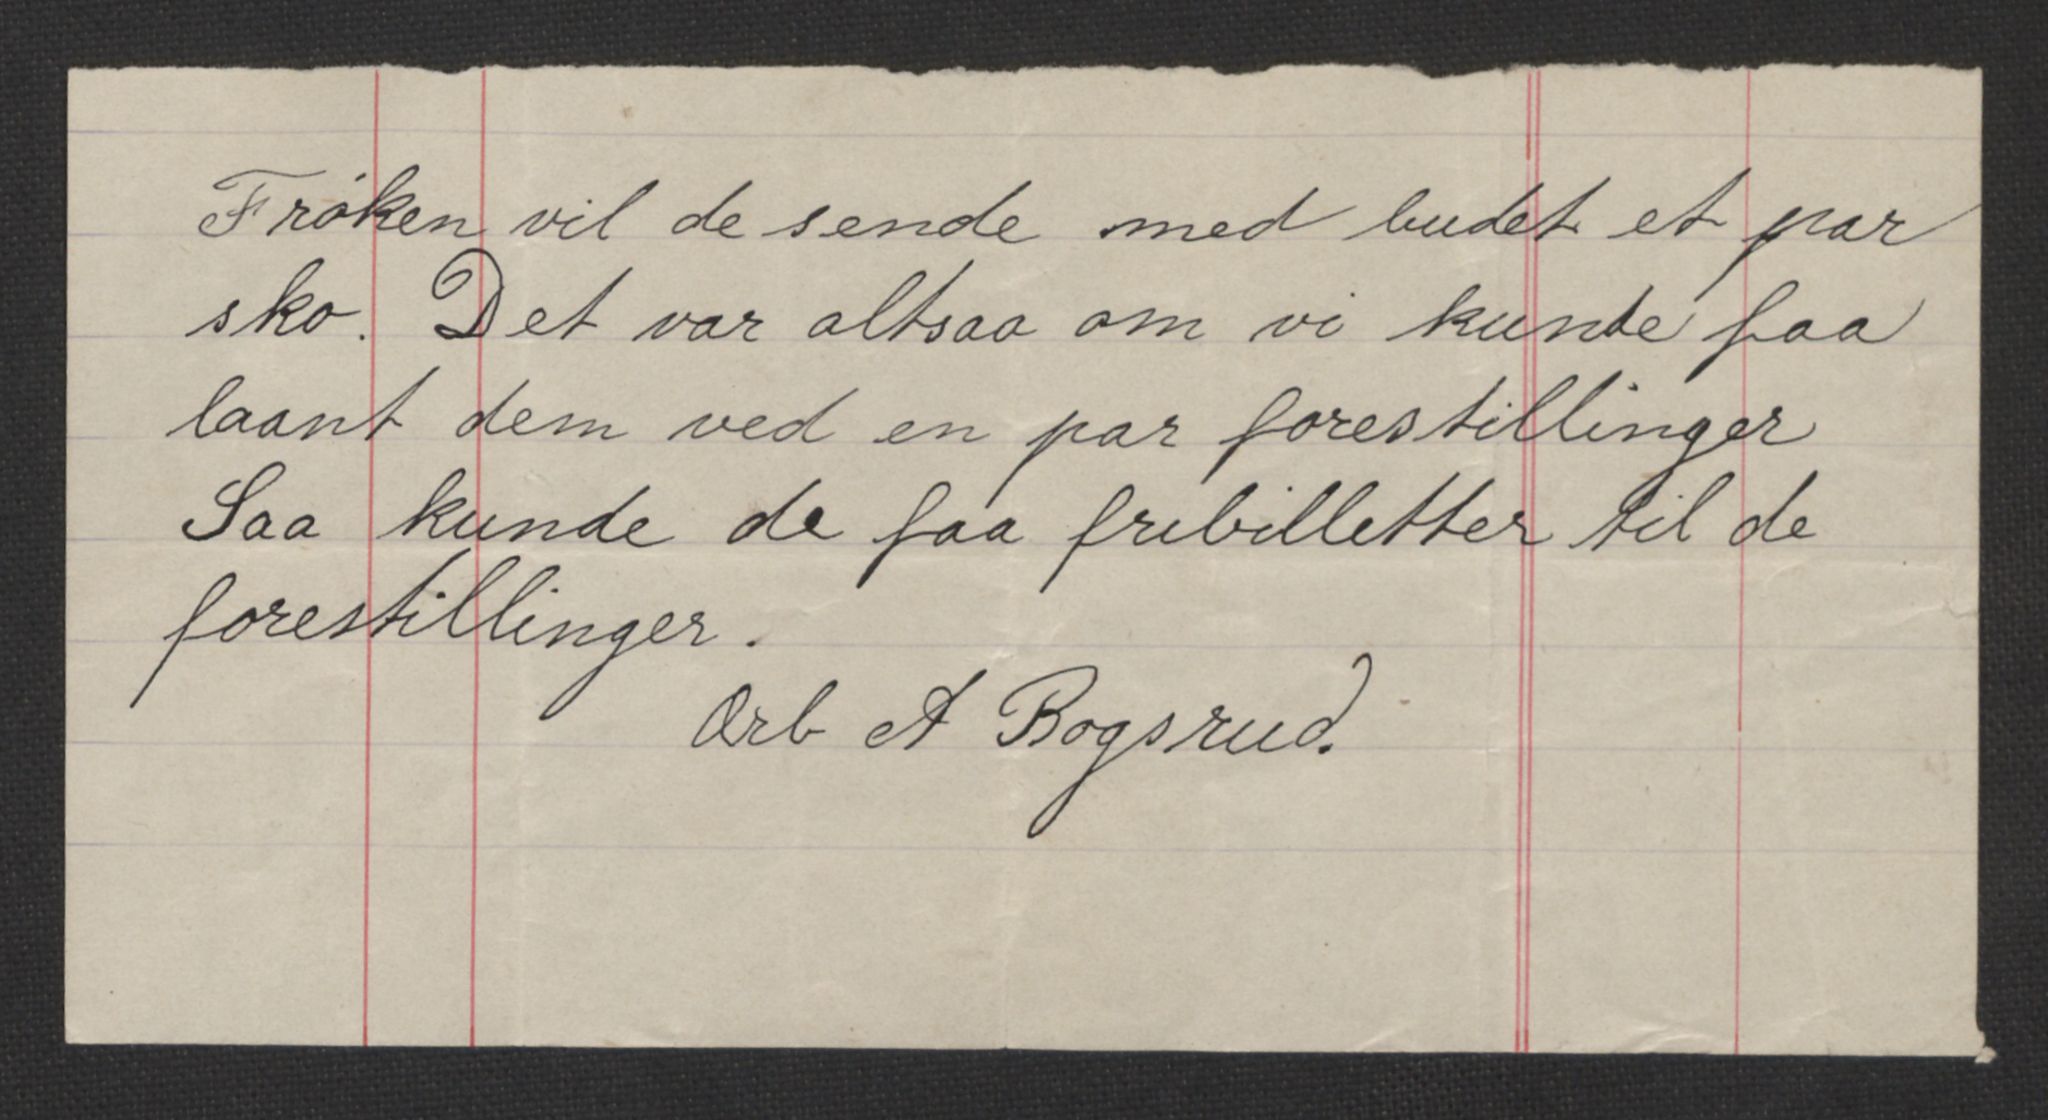 Frøken vil de sende med budet et par
sko. Det var altsaa om vi kunde faa
laant dem ved en par forestillinger
Saa kunde de faa fribilletter til de
forestillinger.
Ærb A Bogsrud.